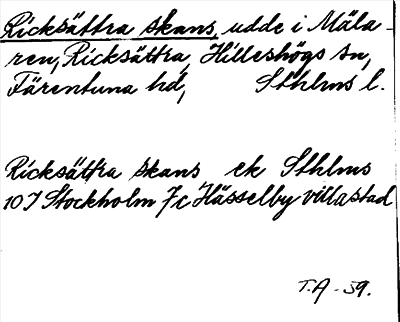 Ricksättra skans, udde i Mäla-
ren, Ricksättra, Hilleshögs sn,
Färentuna hd, Sthlms l.
Ricksättra skans ek Sthlms
10 I Stockholm 7c Hässelby villastad
T.A - 59.